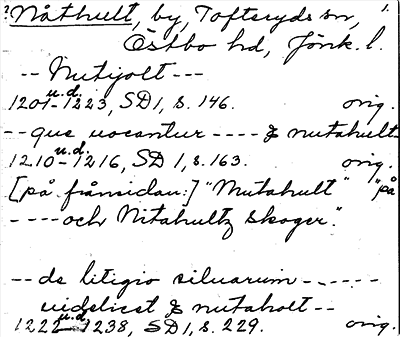 ? Nåthult, by, Tofteryds sn, 1.
Östbo hd, Jönk. l.
-- Nutijolt ---
u.d.
1201-1223, SD 1, s. 146. orig.
-- que uocantur ---- & nutahult-
u.d.
1210-1216, SD 1, s. 163. orig.
[på frånsidan:] "Nutahult" "på
---- och Nitahultz skoger".
-- de litigio siluarum ------
uidelicet & nutaholt --
u.d.
1222-1238, SD 1, s. 229. orig.